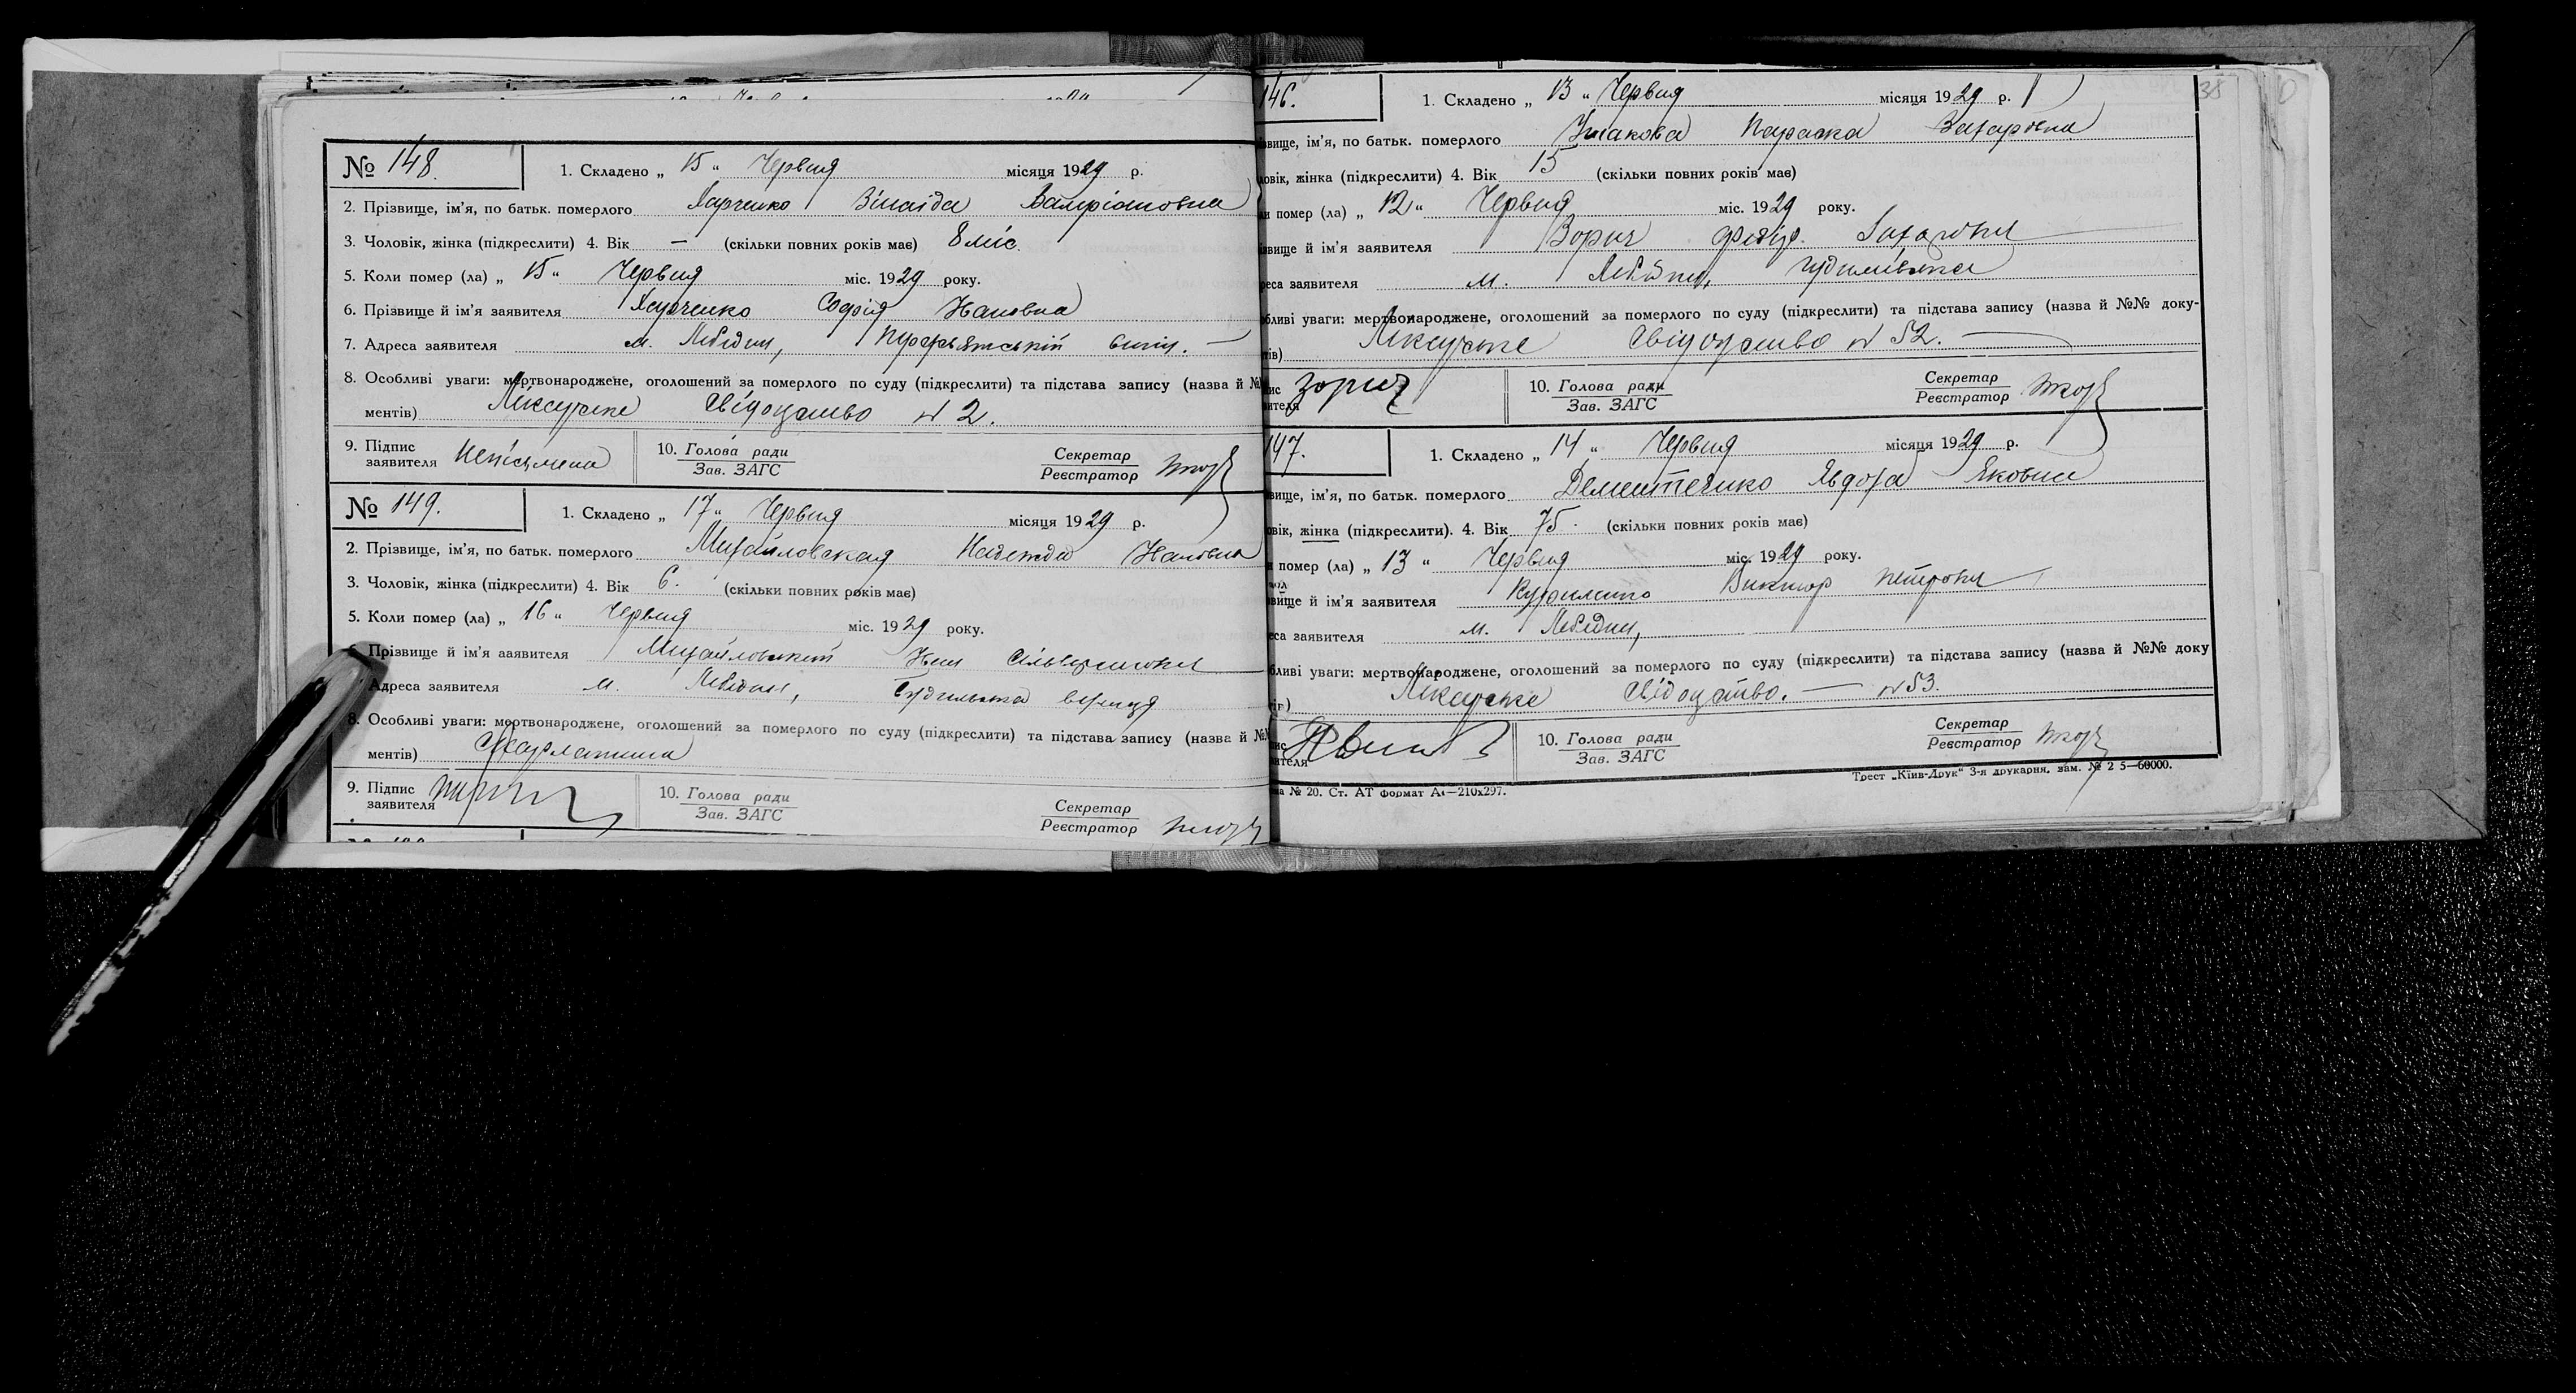 № 148.
1. Складено „ 15 " Червня місяця 1929 р.
2. Прізвище, ім'я, по батьк. померлого Харченко Зінаїда Валріановна
3. Чоловік, жінка (підкреслити) 4. Вік — (скільки повних років має) 8 міс.
5. Коли помер (ла) „ 15 " Червня міс. 1929 року.
6. Прізвище й ім'я заявителя Харченко Софія
7. Адреса заявителя м. Лебедин,
8. Особливі уваги: мертвонароджене, оголошений за померлого по суду (підкреслити) та підстава запису (назва й №
ментів) Лікарське Свідоцтво № 2.
9. Підпис
заявителя Неписьмена
10. Голова ради
Зав. ЗАГС
Секретар
Реєстратор
№ 149.
1. Складено „ 17 " Червня місяця 1929 р.
2. Прізвище, ім'я, по батьк. померлого Михайловская Надежда
3. Чоловік, жінка (підкреслити) 4. Вік 6. (скільки повних років має)
5. Коли помер (ла) „ 16 " Червня міс. 1929 року.
Прізвище й ім'я аявителя Михайловский
Адреса заявителя м. Лебедин,
8. Особливі уваги: мертвонароджене, оголошений за померлого по суду (підкреслити) та підстава запису (назва й №
ментів) Скарлатина
9. Підпис
заявителя
10. Голова ради
Зав. ЗАГС
Секретар
Реєстратор
38
146.
1. Складено „ 13 " Червня місяця 1929 р.
звище, ім'я, по батьк. померлого Ушакова Параска Захаровна
ловік, жінка (підкреслити) 4. Вік 15 (скільки повних років має)
и помер (ла) „ 12 " Червня міс. 1929 року.
звище й ім'я заявителя Зорич
реса заявителя м. Лебедин,
бливі уваги: мертвонароджене, оголошений за померлого по суду (підкреслити) та підстава запису (назва й №№ доку-
тів) Лікарське Свідоцтво № 52.
пис
вителя Зорич
10. Голова ради
Зав. ЗАГС
Секретар
Реєстратор
147.
1. Складено „ 14 " Червня місяця 1929 р.
звище, ім'я, по батьк. померлого Дементенко Явдоха Яковна
овік, жінка (підкреслити). 4. Вік 75. (скільки повних років має)
и помер (ла) „ 13 " Червня міс. 1929 року.
звище й ім'я заявителя Виктор Петрович
еса заявителя м. Лебедин,
бливі уваги: мертвонароджене, оголошений за померлого по суду (підкреслити) та підстава запису (назва й №№ доку
тів) Лікарське Свідоцтво. — № 53.
пис
вителя
10. Голова ради
Зав. ЗАГС
Секретар
Реєстратор
№ 20. Ст. АТ формат А4—210х297.
Трест „Київ-Друк" 3-я друкарня, зам. № 2 5—60000.